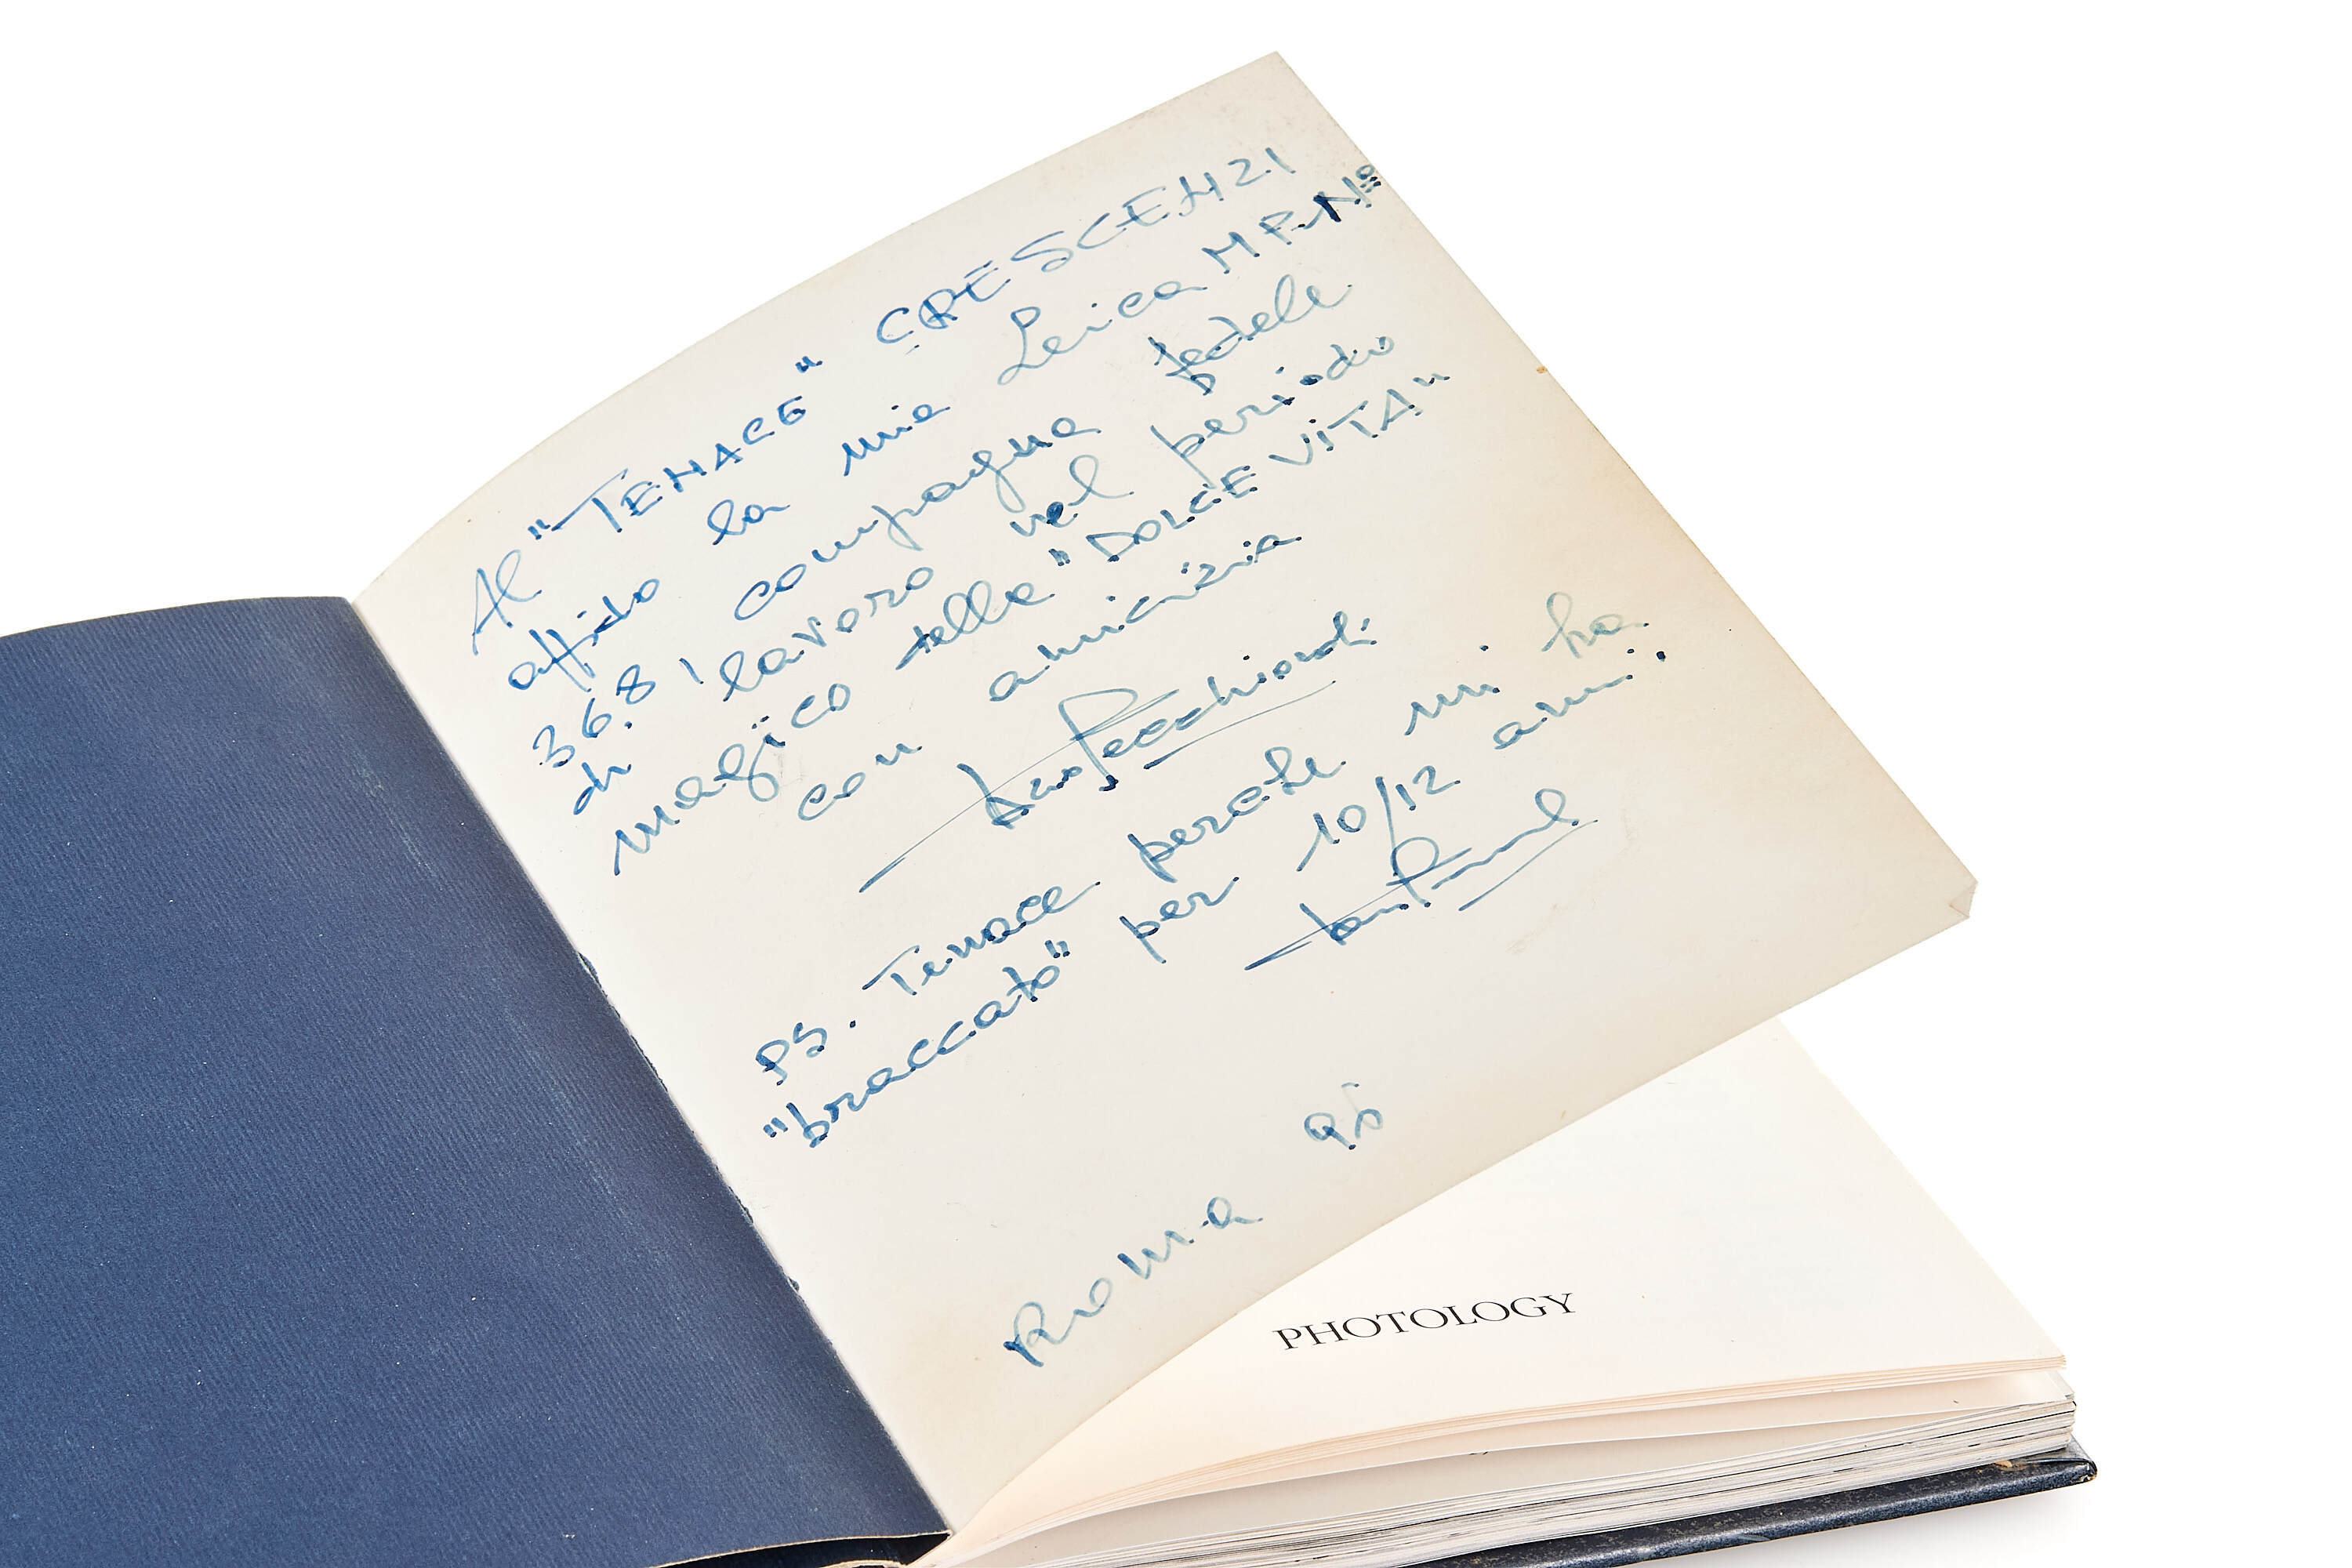 Al "TENACE" CRESCENZI
affido la mia Leica MP. N°
36.8, compagna fedele
di lavoro nel periodo
magico della "DOLCE VITA"
con amicizia
Secchiaroli
PS. Tenace perché mi ha
"braccato" per 10/12 anni.
Roma 95
PHOTOLOGY